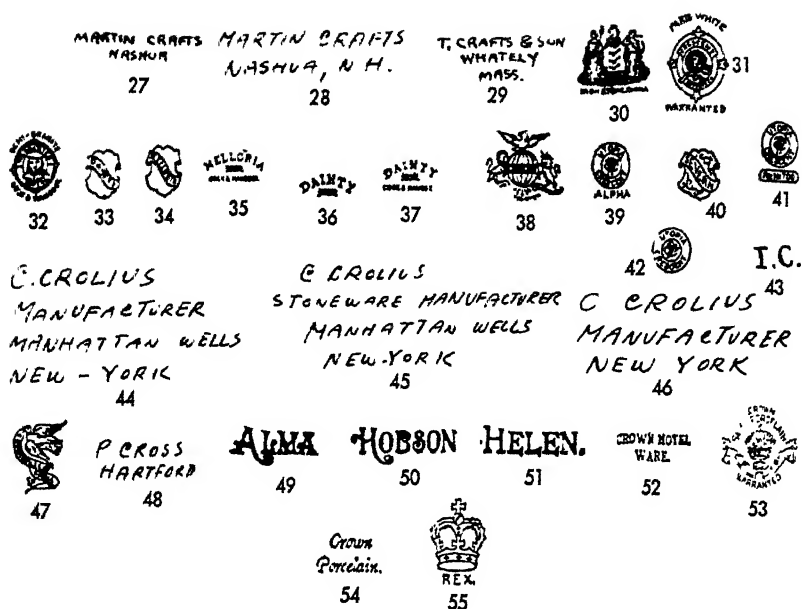 MARTIN CRAFTS
NASHUA
27
MARTIN CRAFTS
NASHUA, N H.
28
T. CRAFTS & SON
WHATELY
MASS.
29
30
WARRANTED
31
32
33
34
MELLORIA
35
DAINTY
36
DAINTY
37
38
ALPHA
39
40
41
UTOPIA
42
I.C.
43
C. CROLIUS
MANUFACTURER
MANHATTAN WELLS
NEW - YORK
44
C CROLIUS
STONEWARE MANUFACTURER
MANHATTAN WELLS
NEW-YORK
45
C CROLIUS
MANUFACTURER
NEW YORK
46
47
P CROSS
HARTFORD
48
ALMA
49
HOBSON
50
HELEN.
51
CROWN HOTEL
WARE.
52
CROWN
PORCELAIN
WARRANTED
53
Crown
Porcelain.
54
REX.
55